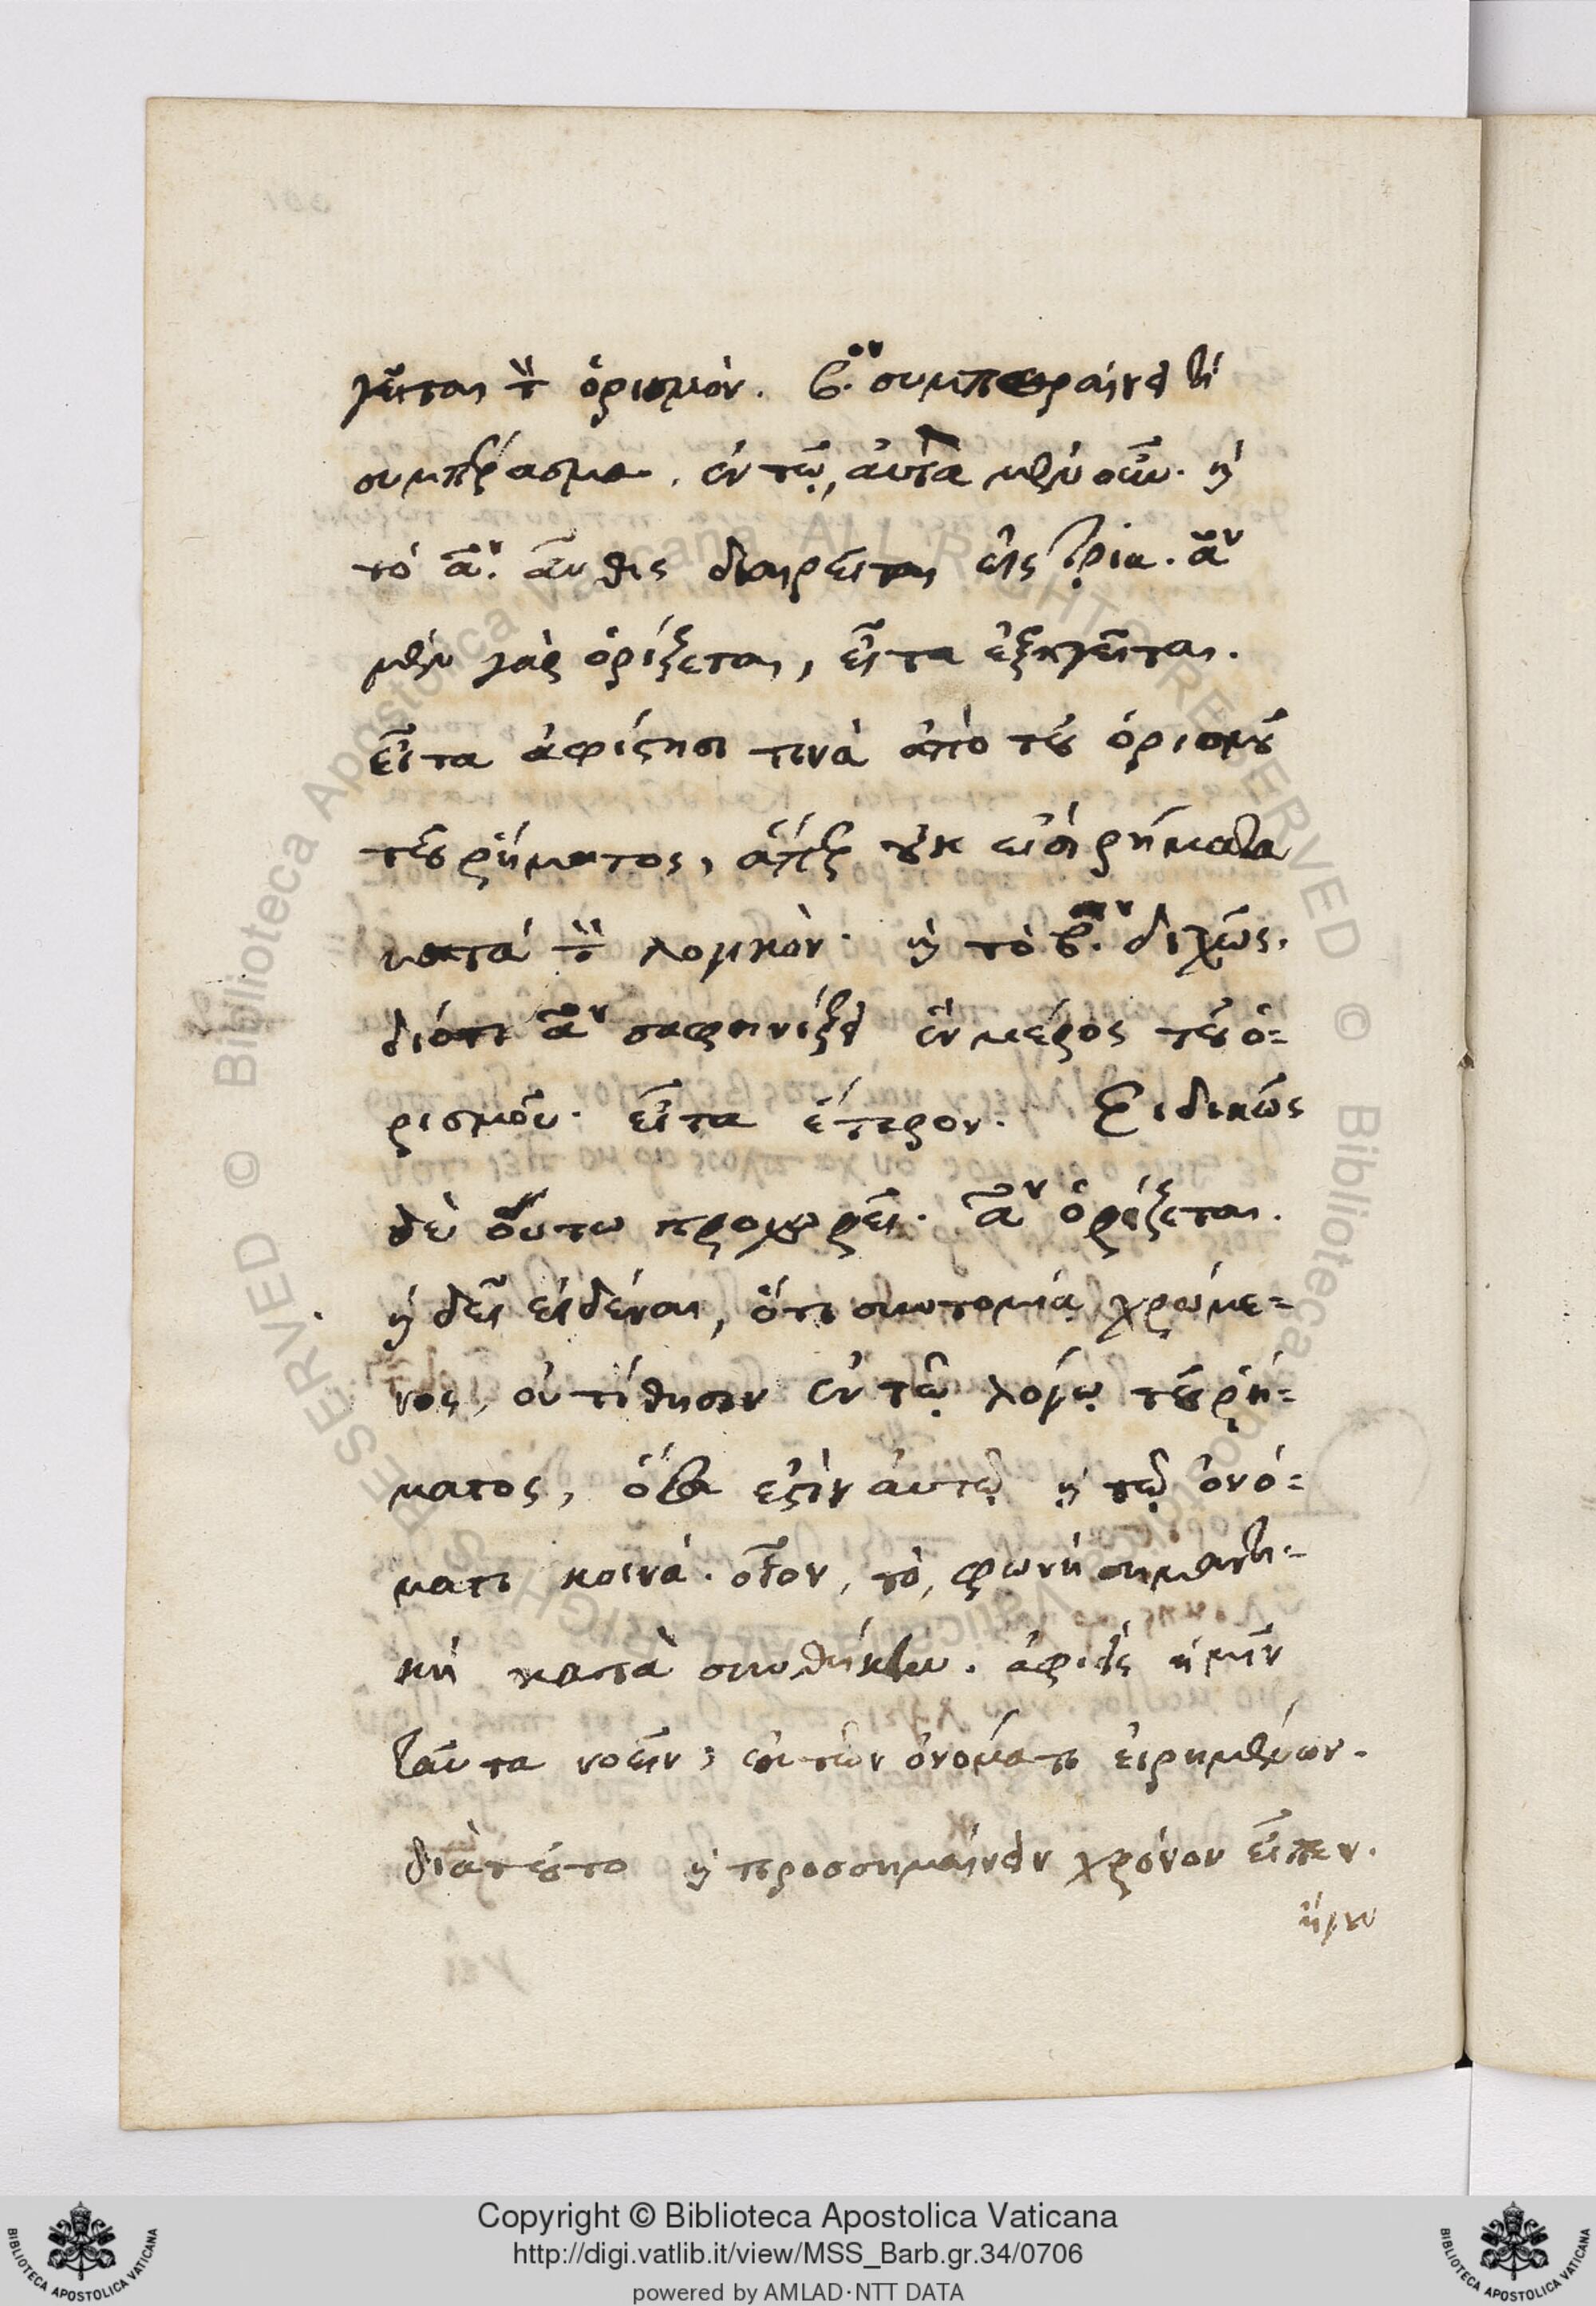 γεῖται τὸν ὁρισμόν. β.ον συμπεραίνει τι
συμπέρασμα. ἐν τῷ, αὐτὰ μὲν οὖν. καὶ
τὸ α.ον αὖθις διαιρεῖται εἰς τρία. αον
μὲν γὰρ ὁρίζεται, εἶτα ἐξηγεῖται.
εἶτα ἀφίστησι τινὰ ἀπὸ τοῦ ὁρισμοῦ
τοῦ ῥήματος, ἅπερ οὐκ εἰσὶ ῥήματα
κατὰ τὸν λογικόν. καὶ τὸ β.ον διχῶς.
διότι αον σαφηνίζει ἓν μέρος τοῦ ὁ=
ρισμοῦ. εἶτα ἕτερον. Εἰδικῶς
δὲ οὕτω προχωρεῖ. αον ὁρίζεται.
καὶ δεῖ εἰδέναι, ὅτι συντομίᾳ χρώμε=
νος, οὐ τίθησιν ἐν τῷ λόγῳ τοῦ ῥή=
ματος, ὅσα ἐστὶν αὐτῷ καὶ τῷ ὀνό=
ματι κοινά. οἷον, τὸ, φωνὴ σημαντι=
κὴ κατὰ συνθήκην. ἀφιεὶς ἡμῖν
ταῦτα νοεῖν, ἐκ τῶν ὀνόματι εἰρημένων.
διὰ τοῦτο καὶ προσσημαίνειν χρόνον εἶπεν.
ἤγουν
Copyright © Biblioteca Apostolica Vaticana
http://digi.vatlib.it/view/MSS_Barb.gr.34/0706
powered by AMLAD·NTT DATA